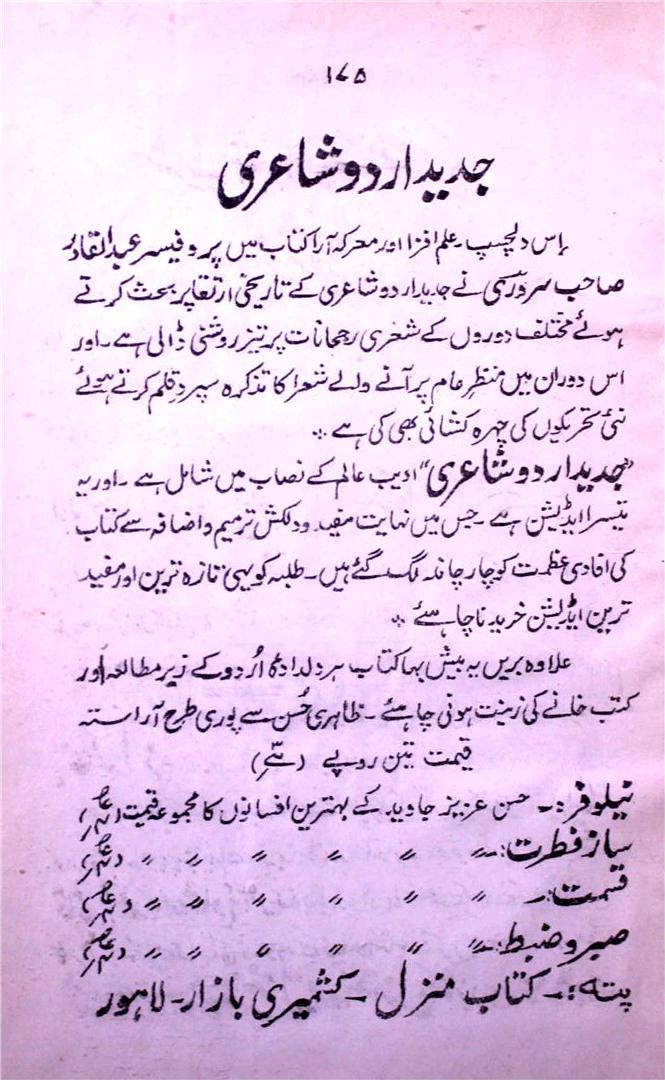 ۱۷۵
جدید اردو شاعری
اِس دلچسپ۔ علم افزا اور معرکہ آرا کتاب میں پروفیسر عبدالقادر
صاحب سروری نے جدید اردو شاعری کے تاریخی ارتقا پر بحث کرتے
ہوئے مختلف دوروں کے شعری رجحانات پر تیز روشنی ڈالی ہے۔ اور
اس دوران میں منظرِ عام پر آنے والے شعرا کا تذکرہ سپردِ قلم کرتے ہوئے
نئی تحریکوں کی چہرہ کشائی بھی کی ہے ۔:
"جدید اردو شاعری" ادیب عالم کے نصاب میں شامل ہے ۔ اور یہ
تیسرا ایڈیشن ہے ۔ جس میں نہایت مفید و دلکش ترمیم و اضافہ سے کتاب
کی افادی عظمت کو چار چاند لگ گئے ہیں ۔ طلبہ کو یہی تازہ ترین اور مفید
ترین ایڈیشن خریدنا چاہئے ۔:
علاوہ بریں یہ بیش بہا کتاب ہر دلدادۂ اُردو کے زیر مطالعہ اور
کتب خانے کی زینت ہونی چاہئے ۔ ظاہری حُسن سے پوری طرح آراستہ
قیمت تین روپے
نیلوفر:۔ حسن عزیز جاوید کے بہترین افسانوں کا مجموعہ قیمت
سازِ فطرت:۔ 〃 〃 〃 〃 〃 〃
قسمت:۔ 〃 〃 〃 〃 〃 〃
صبر و ضبط:۔ 〃 〃 〃 〃 〃 〃
پتہ:۔ کتاب منزل ۔ کشمیری بازار ۔ لاہور